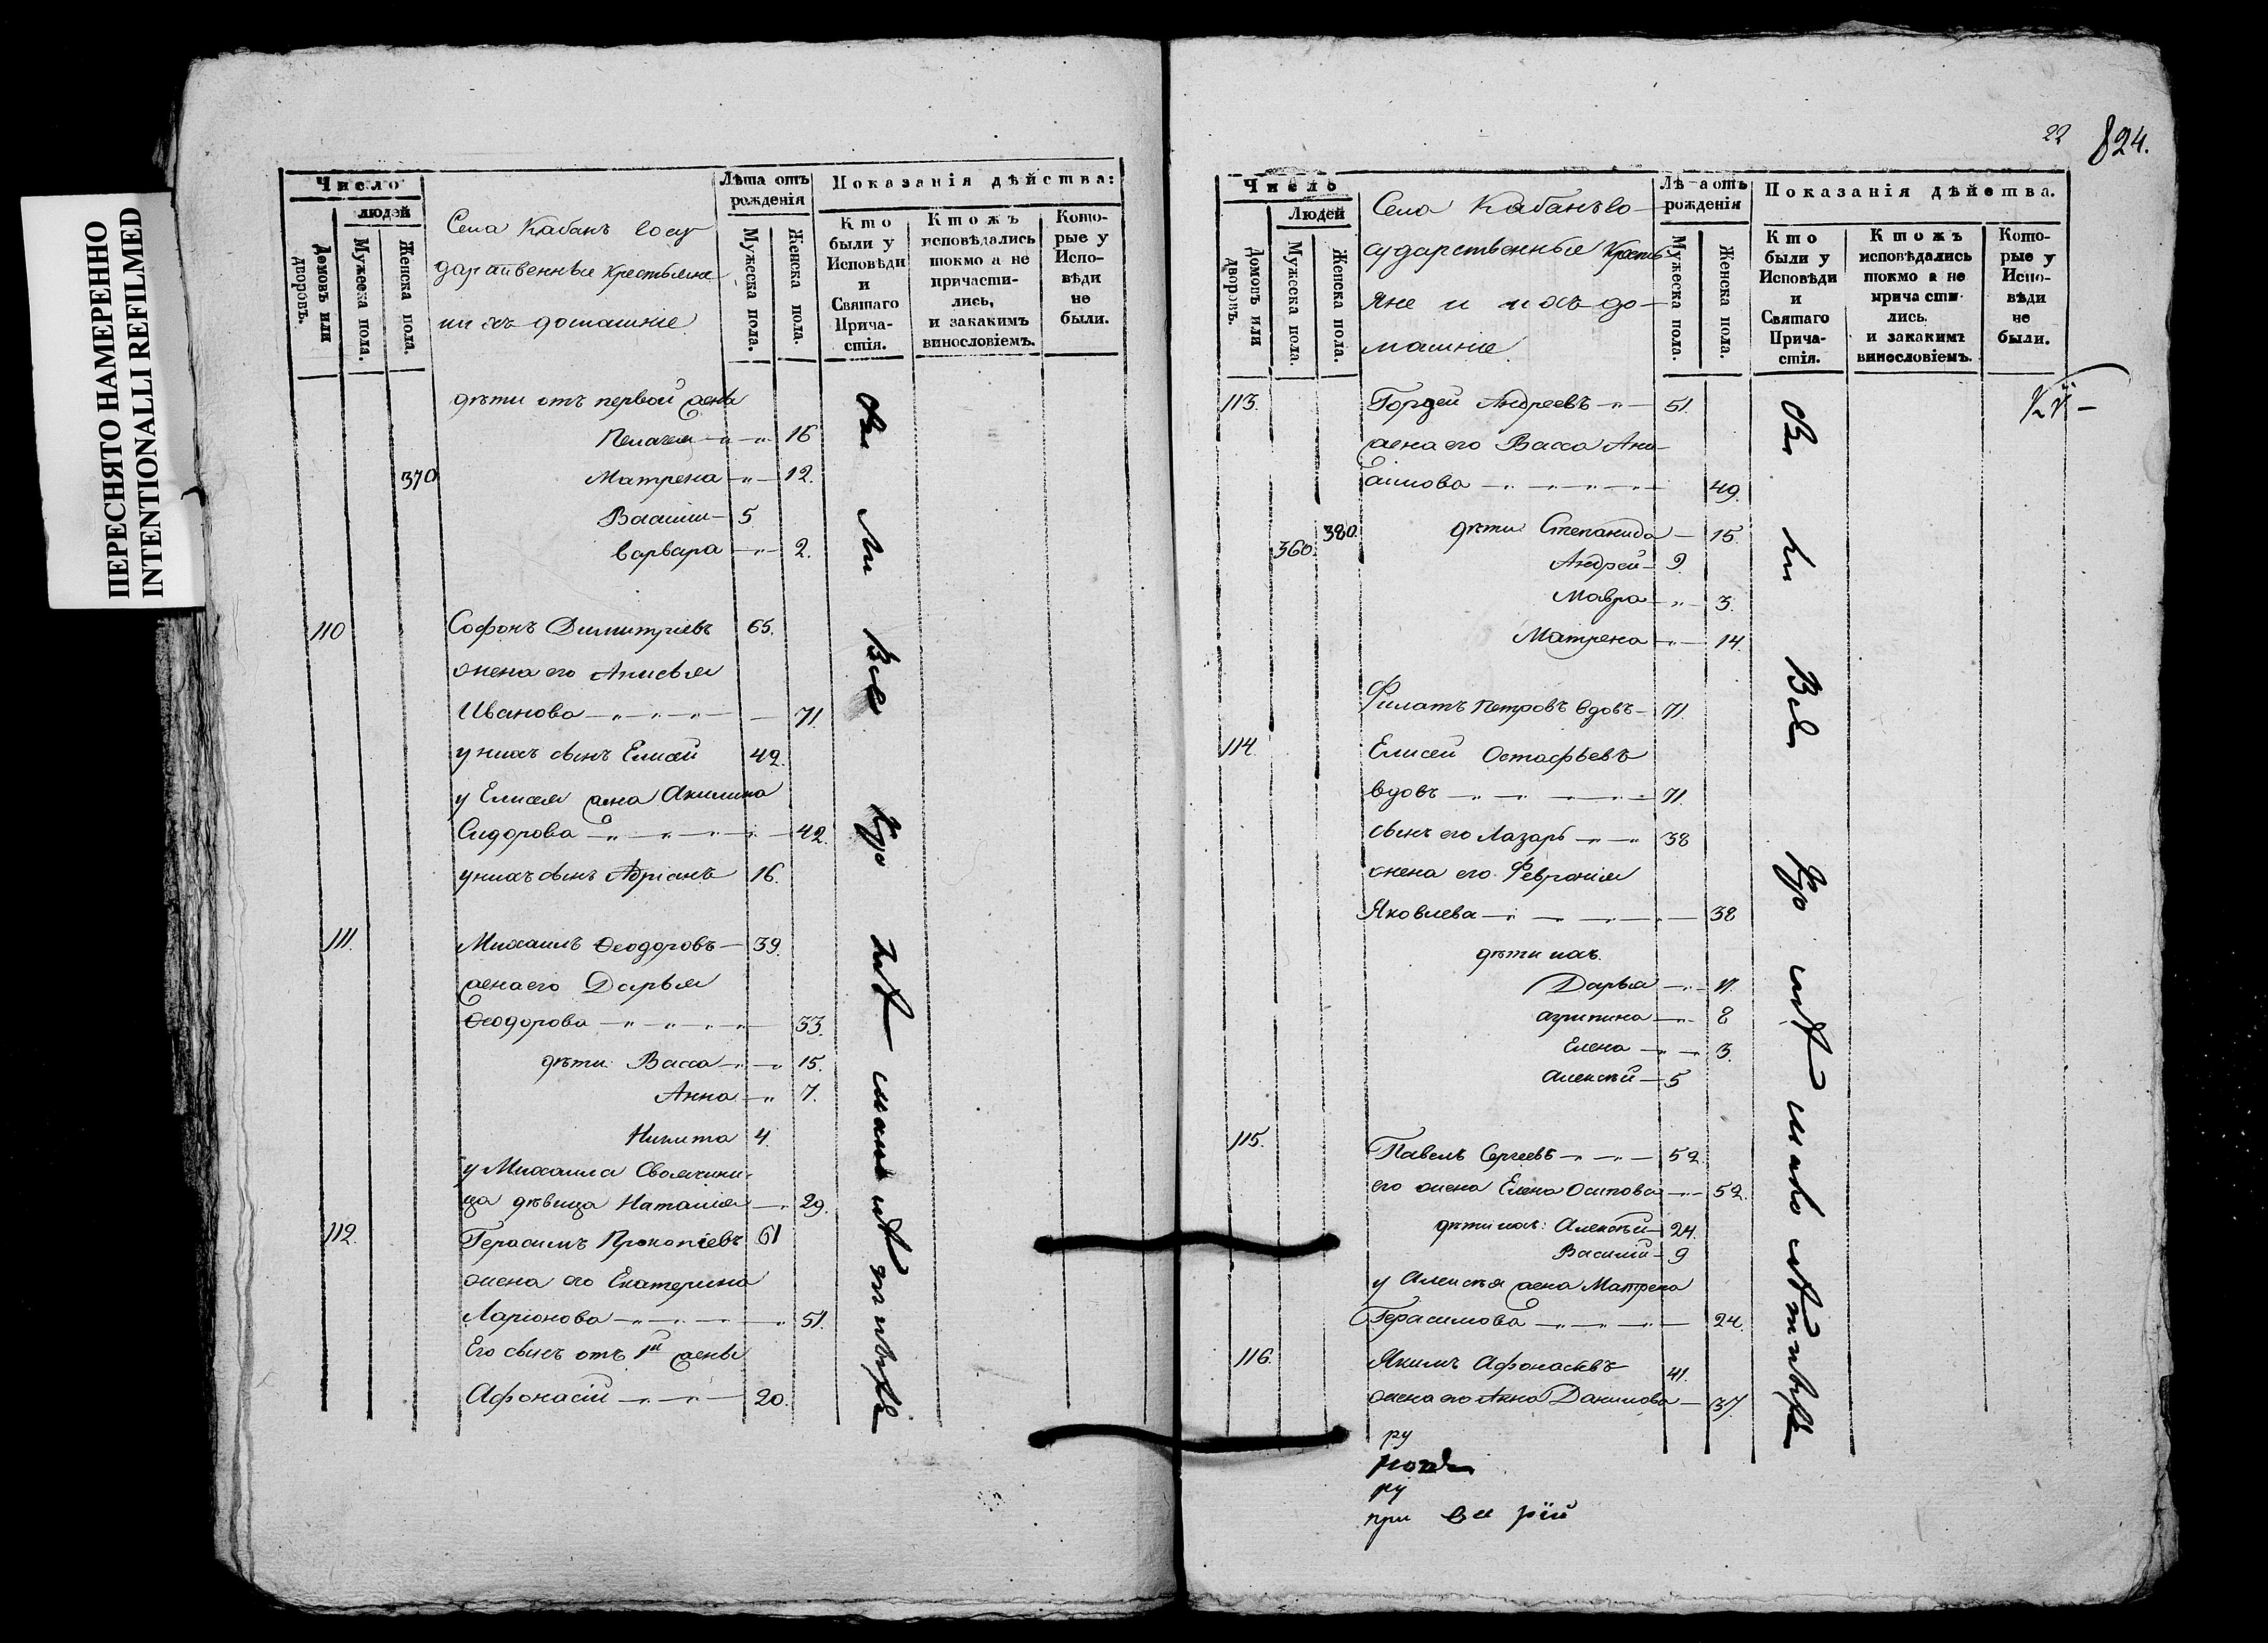 ПЕРЕСНЯТО НАМЕРЕННО
INTENTIONALLI REFILMED
Число
людей
Домовъ или дворовъ.
Мужеска пола.
Женска пола.
Села Кабанъ Госу
дарственные крестьяне
и ихъ домашніе
Лѣта отъ рожденія
Мужеска пола.
Женска пола.
Показанія дѣйства:
Кто были у Исповѣди и Святаго Причастія.
Ктожъ исповѣдались токмо а не причастились, и закакимъ винословіемъ.
Которые у Исповѣди не были.
дѣти отъ первой жены
Пелагея 16
370 Матрена 12.
Василій 5
Варвара 2.
110 Софонъ Димитріевъ 65.
жена его Анисья
Иванова 71
у нихъ сынъ Елисей 42.
у Елисея жена Акилина
Сидорова 42.
у нихъ сынъ Адріанъ 16.
111. Михаилъ Ѳеодоровъ 39.
жена его Дарья
Ѳеодорова 33.
дѣти: Васса 15.
Анна 7.
Никита 4.
у Михаила Своячини
ца дѣвица Наталия 29.
112. Герасимъ Прокопіевъ 61
жена его Екатерина
Ларіонова 51.
Его сынъ отъ 1й жены
Афонасій 20.
22 824.
Число
Людей
Домовъ или дворовъ.
Мужеска пола.
Женска пола.
Села Кабанъ Го
сударственные Кресть
яне и ихъ до
машніе
Лѣта отъ рожденія
Мужеска пола.
Женска пола.
Показанія дѣйства.
Кто были у Исповѣди и Святаго Причастія.
Ктожъ исповѣдались токмо а не причастились. и закакимъ винословіемъ.
Которые у Исповѣди не были.
113. Гордей Андреевъ 51.
жена его Васса Ани
симова 49.
380. дѣти Степанида 15.
360. Андрей 9.
Мавра 3.
Матрена 14.
Филатъ Петровъ вдовъ 71.
114. Елисей Остафьевъ
вдовъ 71.
сынъ его Лазарь 38
жена его Февронія
Яковлева 38
дѣти ихъ.
Дарья 11.
Агрипина 8
Елена 3.
Алексѣй 5
115. Павелъ Сергеевъ 52.
его жена Елена Осипова 52.
дѣти ихъ: Алексѣй 24.
Василій 9
у Алексѣя жена Матрена
Герасимова 24.
116. Якимъ Афонасьевъ 41.
жена его Анна Данилова 37.
ру
ру
при